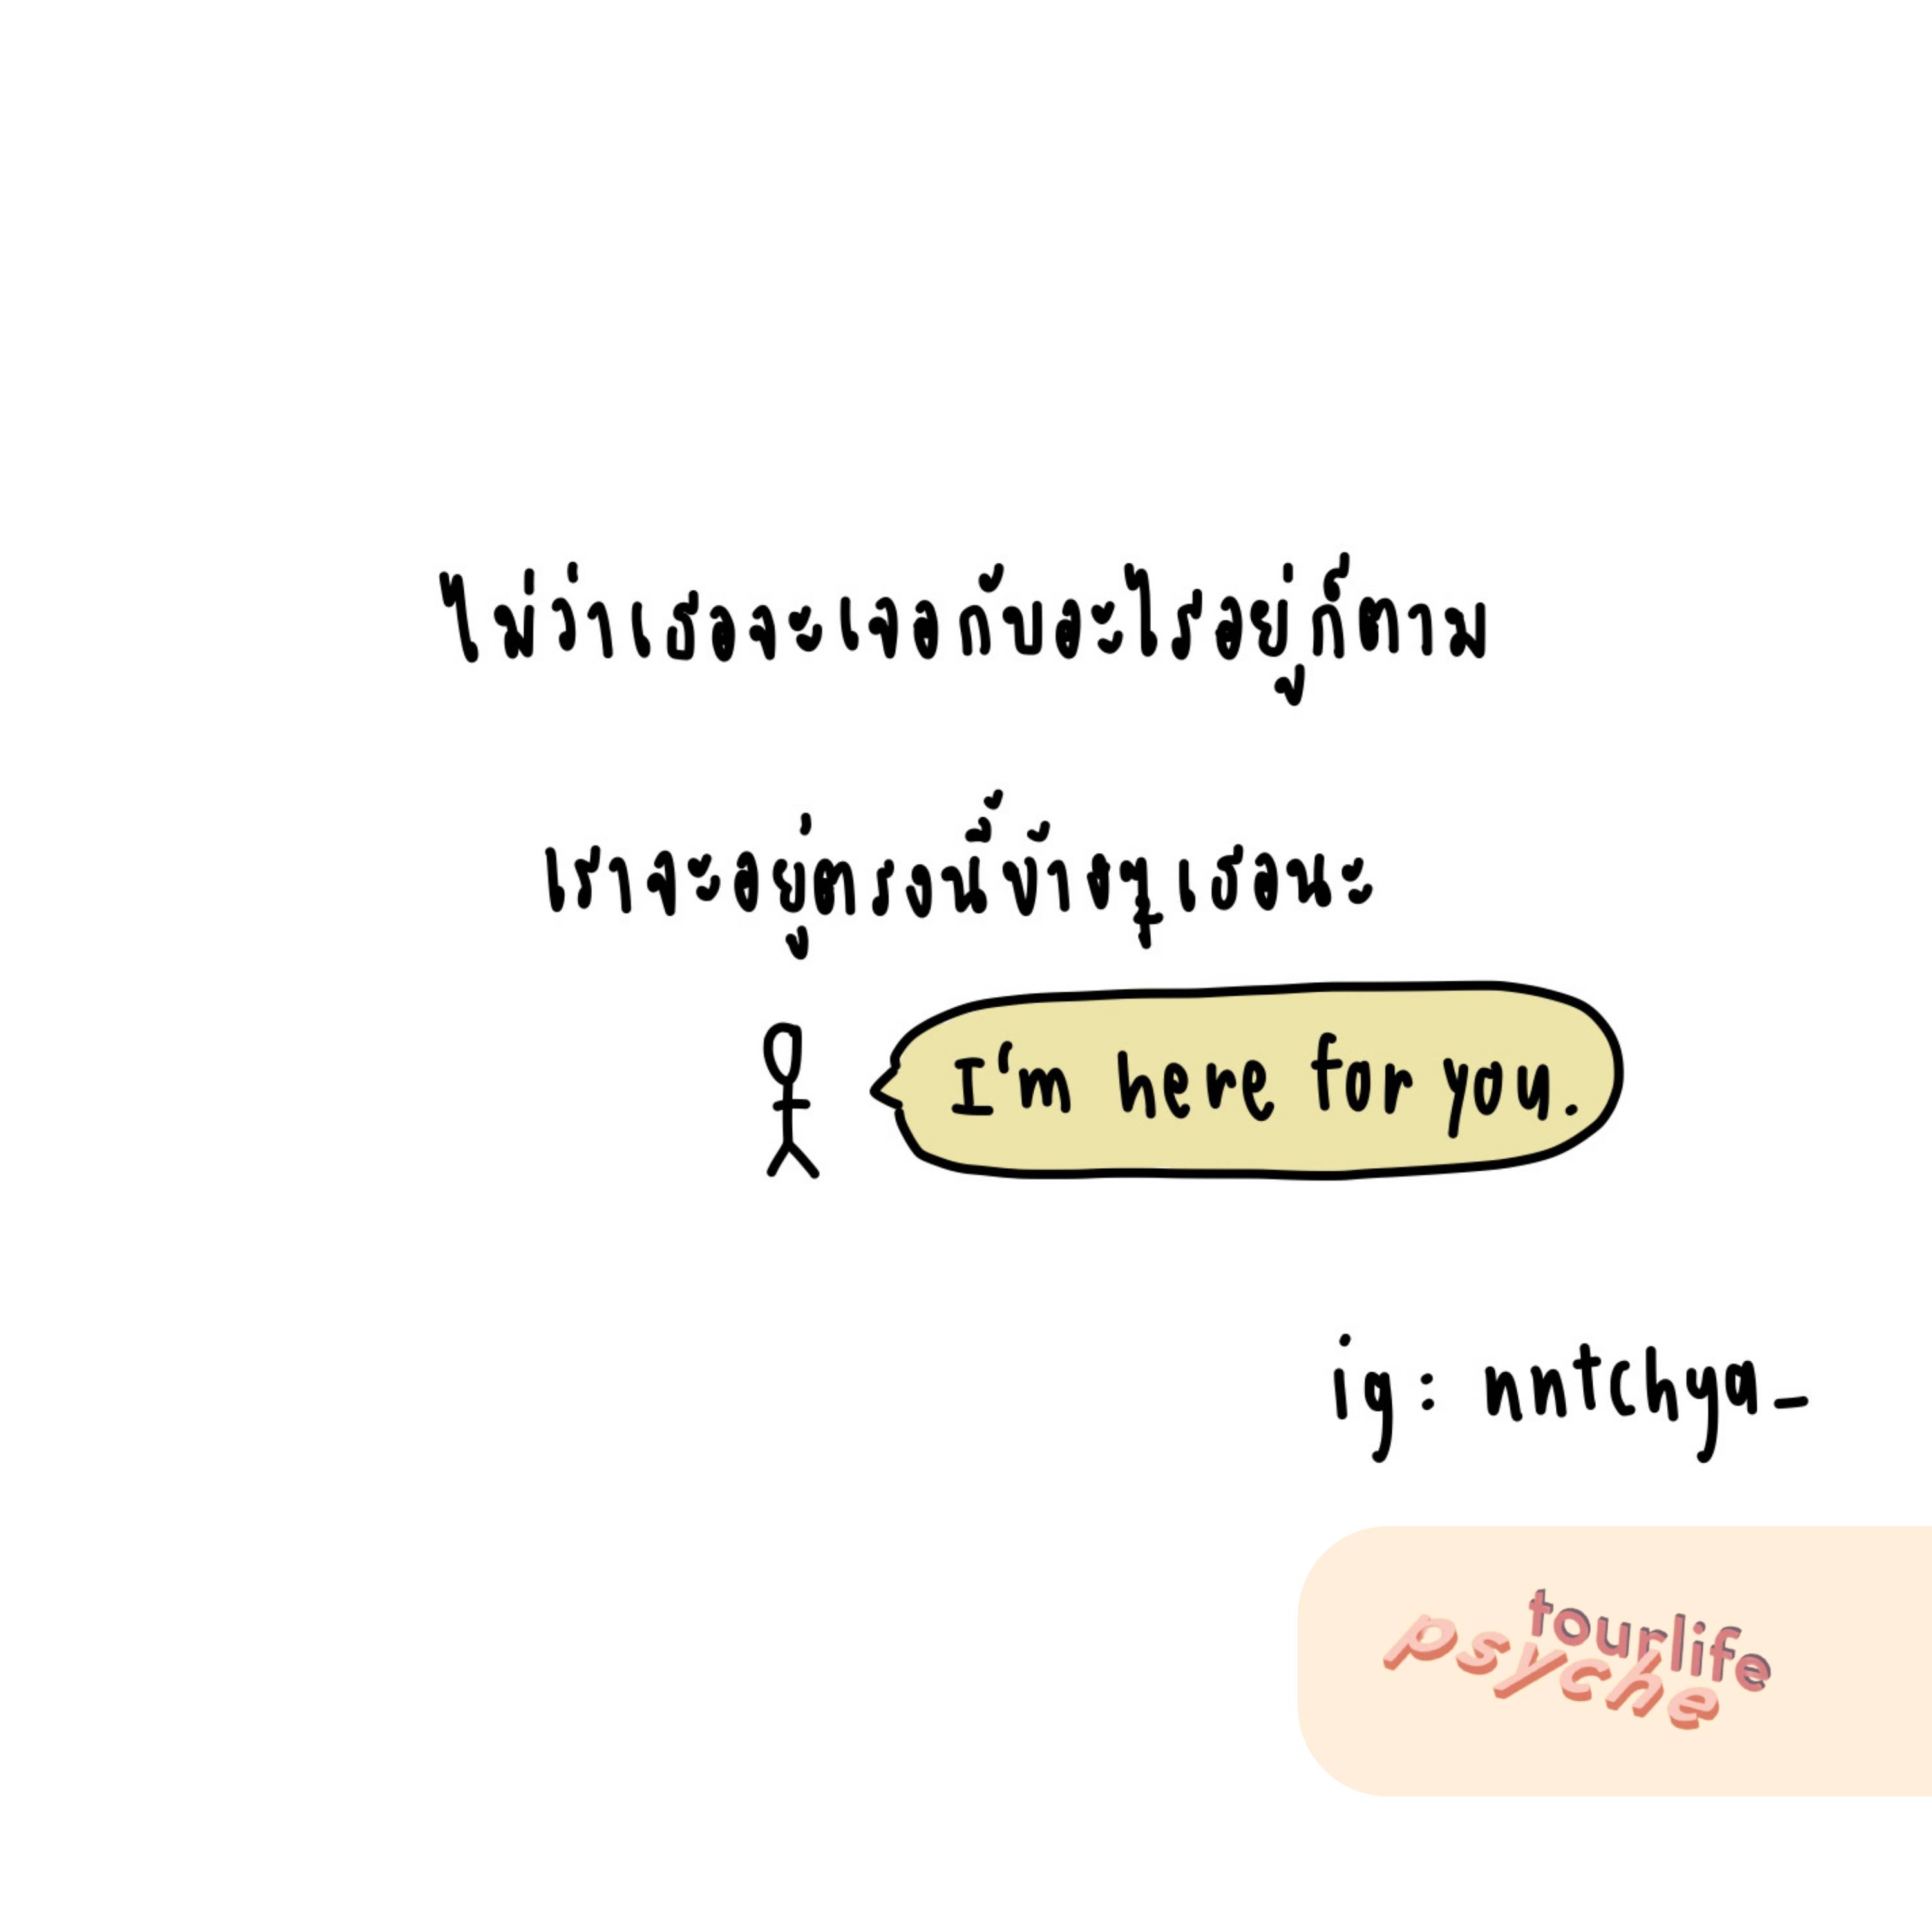 ไม่ว่าเธอจะเจอกับอะไรอยู่ก็ตาม
เราจะอยู่ตรงนี้ข้างๆเธอนะ
I'm here for you.
ig: nntchya_
tourlife
psyche